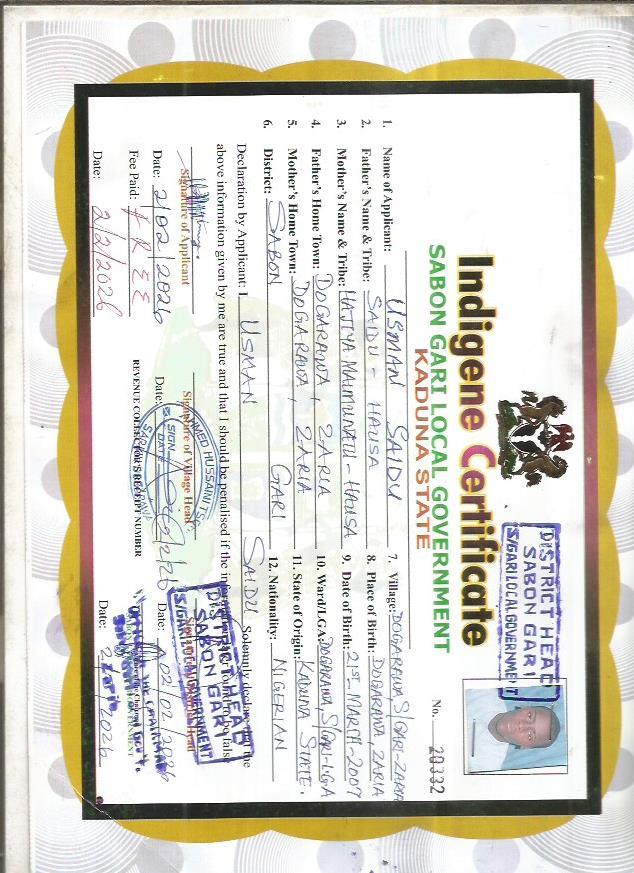 Indigene Certificate
SABON GARI LOCAL GOVERNMENT
KADUNA STATE
DISTRICT HEAD
SABON GARI
S/GARI LOCAL GOVERNMENT
No. 20332
1. Name of Applicant: USMAN SAIDU
2. Father's Name & Tribe: SAIDU - HAUSA
3. Mother's Name & Tribe: HAJIYA MAIMUNATU - HAUSA
4. Father's Home Town: DOGARAWA, ZARIA
5. Mother's Home Town: DOGARAWA, ZARIA
6. District: SABON GARI
7. Village: DOGARAWA S/GARI-ZARIA
8. Place of Birth: DOGARAWA, ZARIA
9. Date of Birth: 21ST-MARCH-2007
10. Ward/LGA: DOGARAWA, S/GARI-LGA
11. State of Origin: KADUNA STATE.
12. Nationality: NIGERIAN
Declaration by Applicant: I, USMAN SAIDU Solemnly declare that the
above information given by me are true and that I should be penalised if the information is found false
Signature of Applicant
Date: 2/02/2026
Fee Paid: FREE
Date: 2/2/2026
Signature of Village Head
Date:
AHMED HUSSAINI
SIGN
DATE
REVENUE COLLECTOR'S RECEIPT NUMBER
DISTRICT HEAD
SABON GARI
S/GARI LOCAL GOVERNMENT
Date: 02/02/2026
Date: 2/2/2026